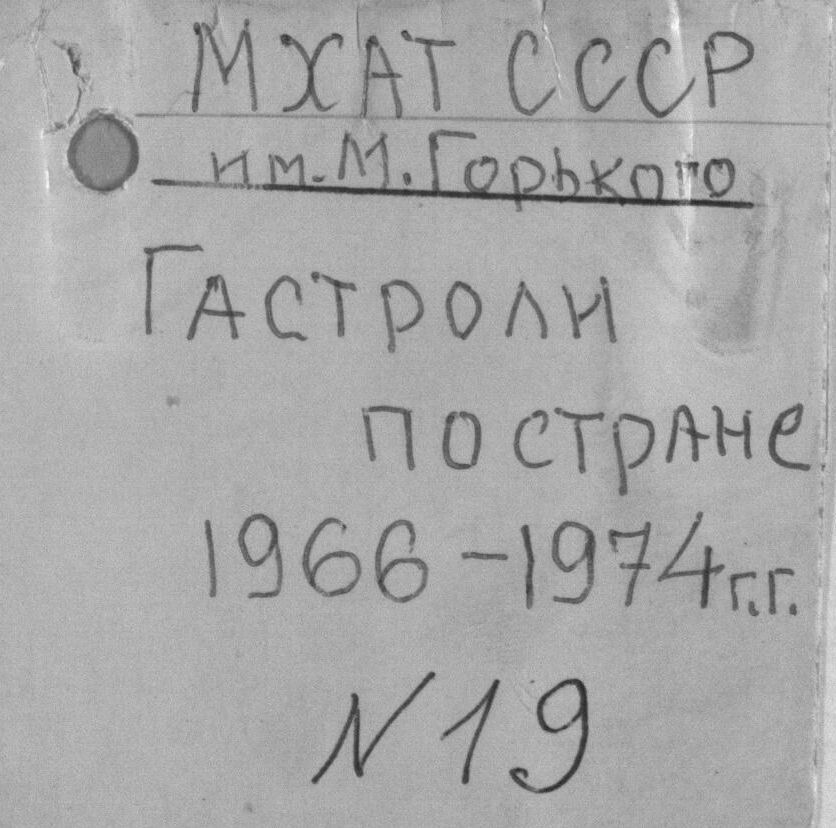 МХАТ СССР
им. М. Горького
Гастроли
по стране
1966-1974г.г.
N 19